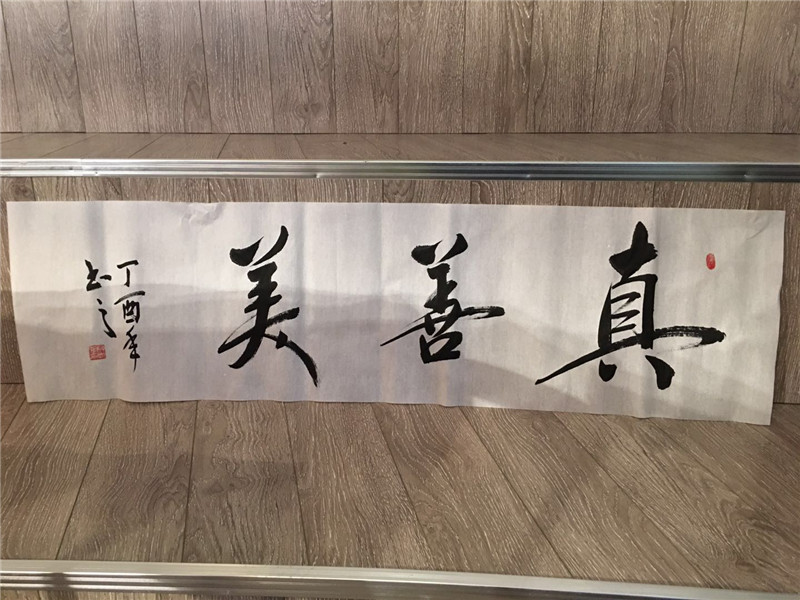 真善美
丁酉年